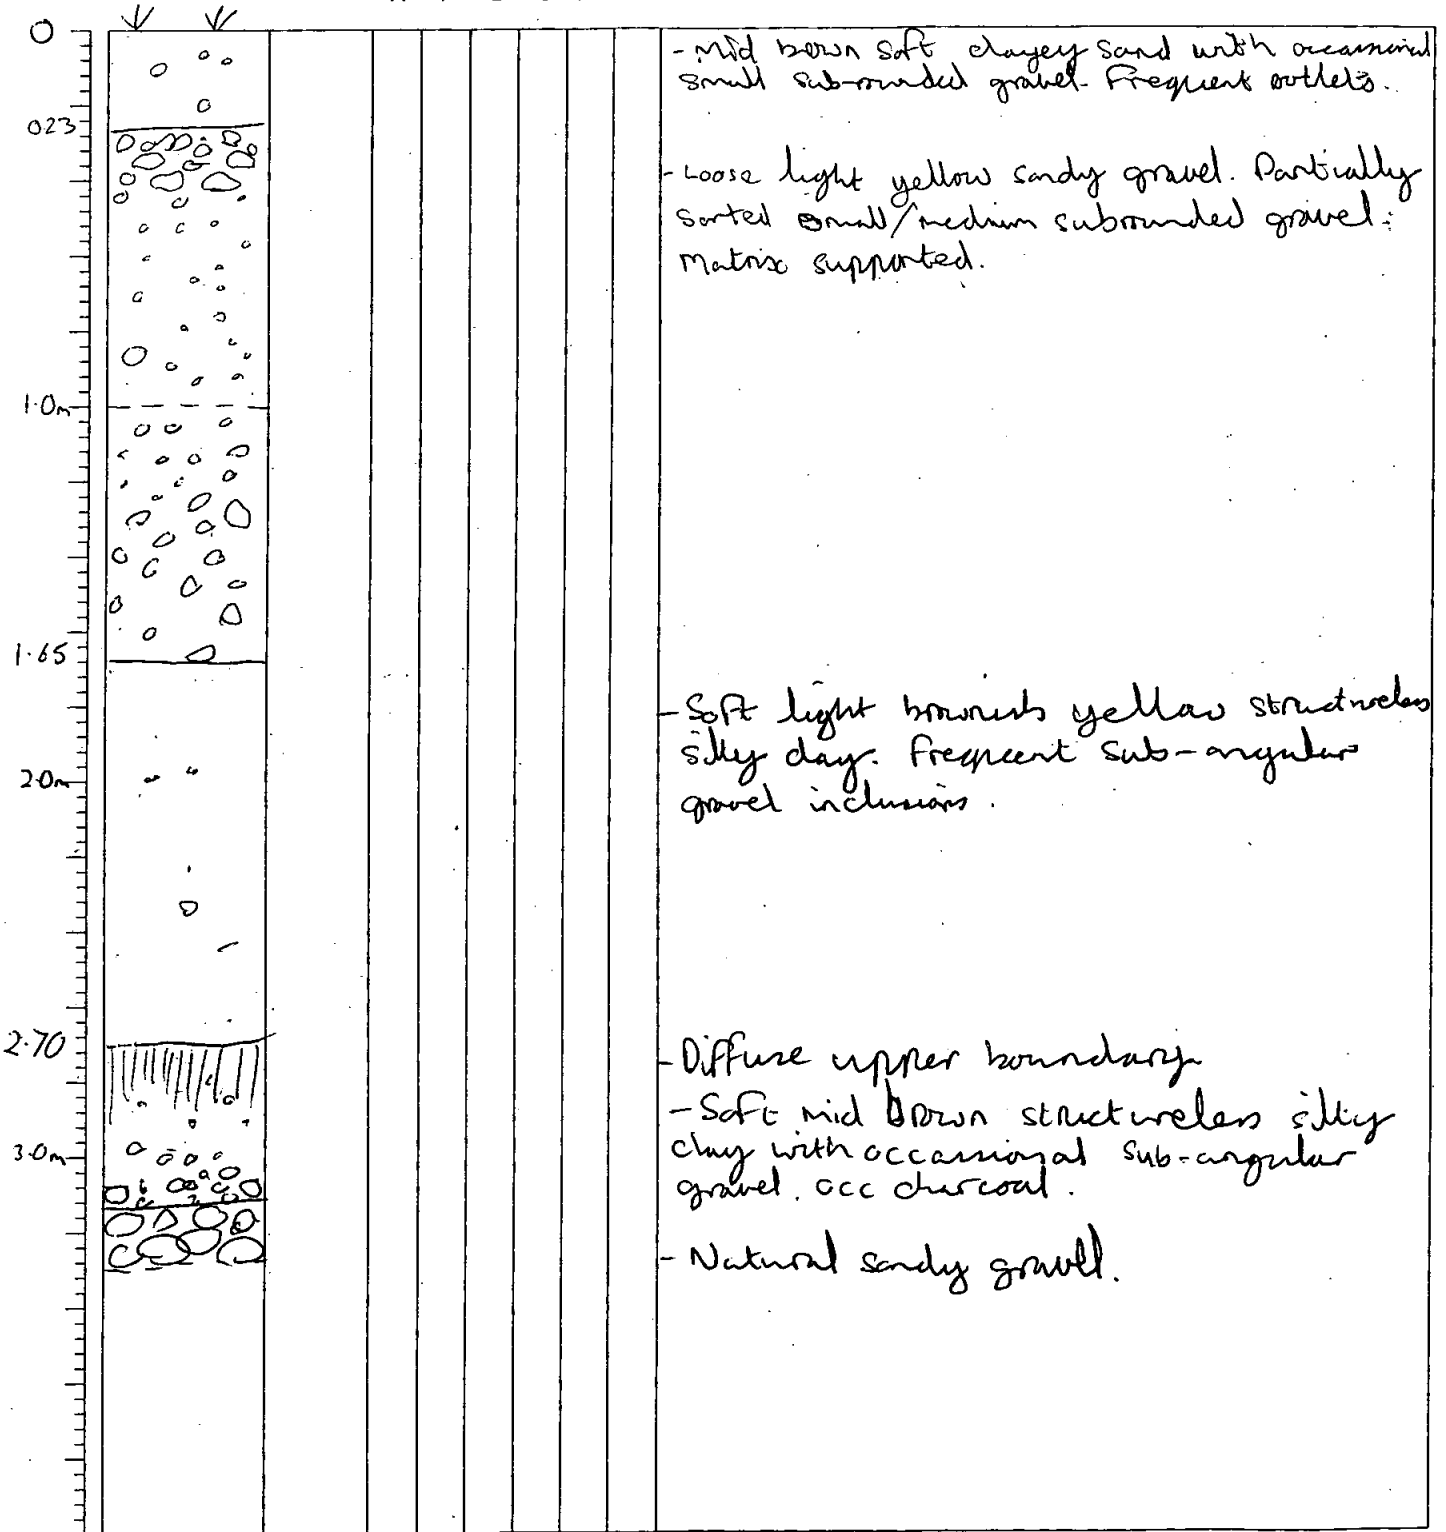 0
- Mid brown soft clayey sand with occassional
small sub-rounded gravel. Frequent
0.23
- Loose light yellow sandy gravel. Partially
sorted small/medium subrounded gravel.
Matrix supported.
1.0m
1.65
- Soft light brownish yellow structureless
silty clay. Frequent sub-angular
gravel inclusions.
2.0m
2.70
- Diffuse upper boundary
- Soft mid brown structureless silty
clay with occassional sub-angular
gravel. occ charcoal.
3.0m
- Natural sandy gravell.